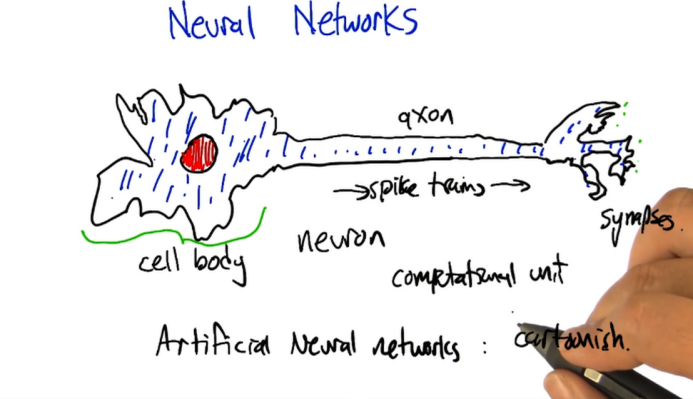 Neural Networks
axon
→spike trains→
synapses.
neuron
cell body
computational unit
Artificial Neural networks : cartoonish.